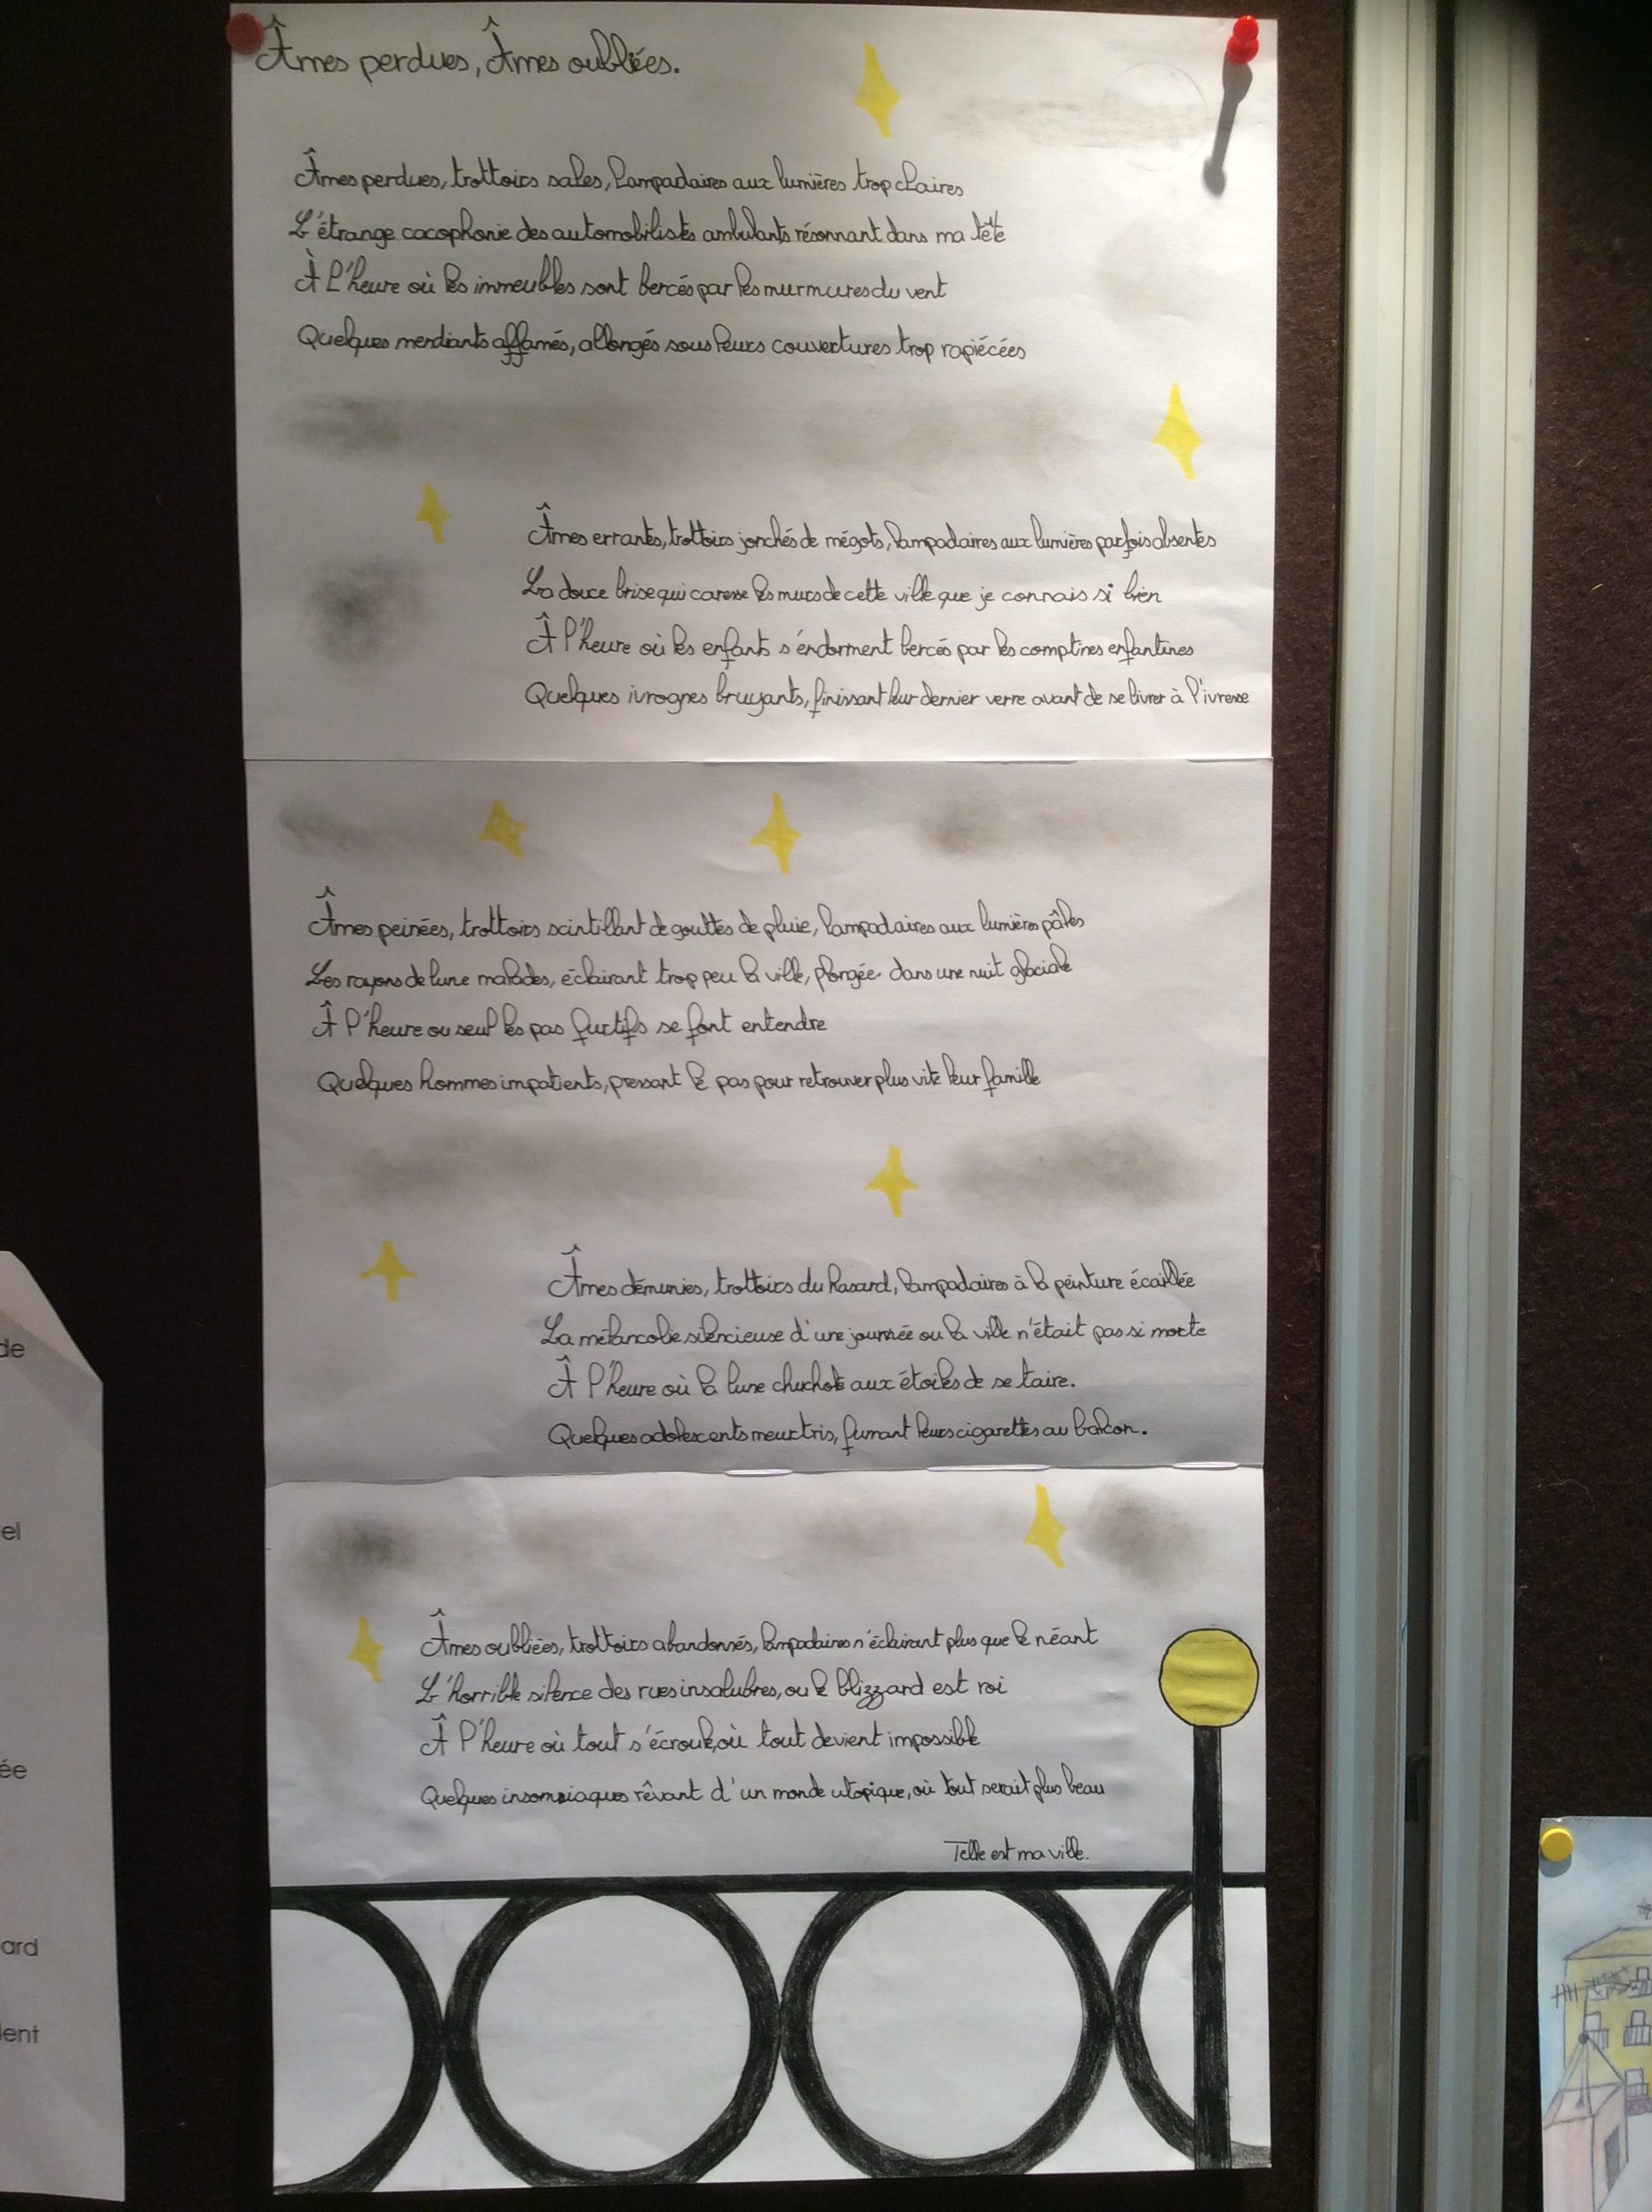 Âmes perdues, Âmes oubliées.
Âmes perdues, trottoirs sales, lampadaires aux lumières trop claires
L'étrange cacophonie des automobilistes ambulants résonnant dans ma tête
À l'heure où les immeubles sont bercés par les murmures du vent
Quelques mendiants affamés, allongés sous leurs couvertures trop rapiécées
Âmes errantes, trottoirs jonchés de mégots, lampadaires aux lumières parfois absentes
La douce brise qui caresse les murs de cette ville que je connais si bien
 l'heure où les enfants s'endorment bercés par les comptines enfantines
Quelques ivrognes bruyants, finissant leur dernier verre avant de se livrer à l'ivresse
Âmes peinées, trottoirs scintillant de gouttes de pluie, lampadaires aux lumières pâles
Les rayons de lune malades, éclairant trop peu la ville, plongée dans une nuit glaciale
 l'heure ou seul les pas furtifs se font entendre
Quelques hommes impatients, pressant le pas pour retrouver plus vite leur famille
Âmes démunies, trottoirs du hasard, lampadaires à la peinture écaillée
La mélancolie silencieuse d'une journée ou la ville n'était pas si morte
 l'heure où la lune chuchote aux étoiles de se taire.
Quelques adolescents meurtris, fumant leurs cigarettes au balcon.
Âmes oubliées, trottoirs abandonnés, lampadaires n'éclairant plus que le néant
L'horrible silence des rues insalubres, ou le blizzard est roi
 l'heure où tout s'écroule, où tout devient impossible
Quelques insomniaques rêvant d'un monde utopique, où tout serait plus beau
Telle est ma ville.
de
el
ée
ard
lent